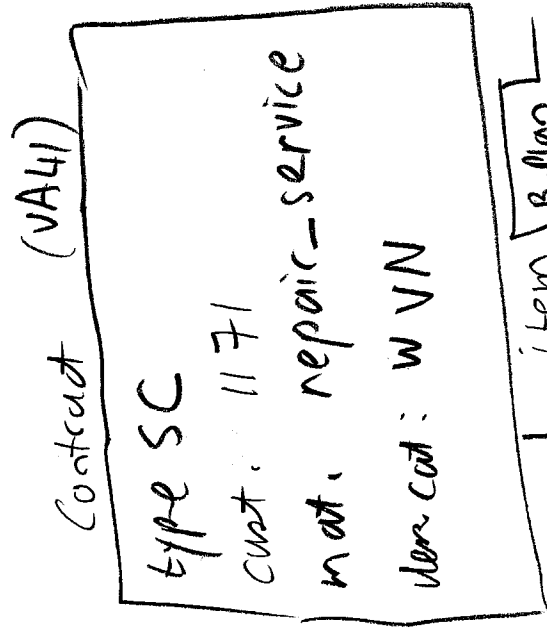 Contract (VA41)
type SC
cust. 1171
mat. repair_service
item cat: WVN
item B Plan